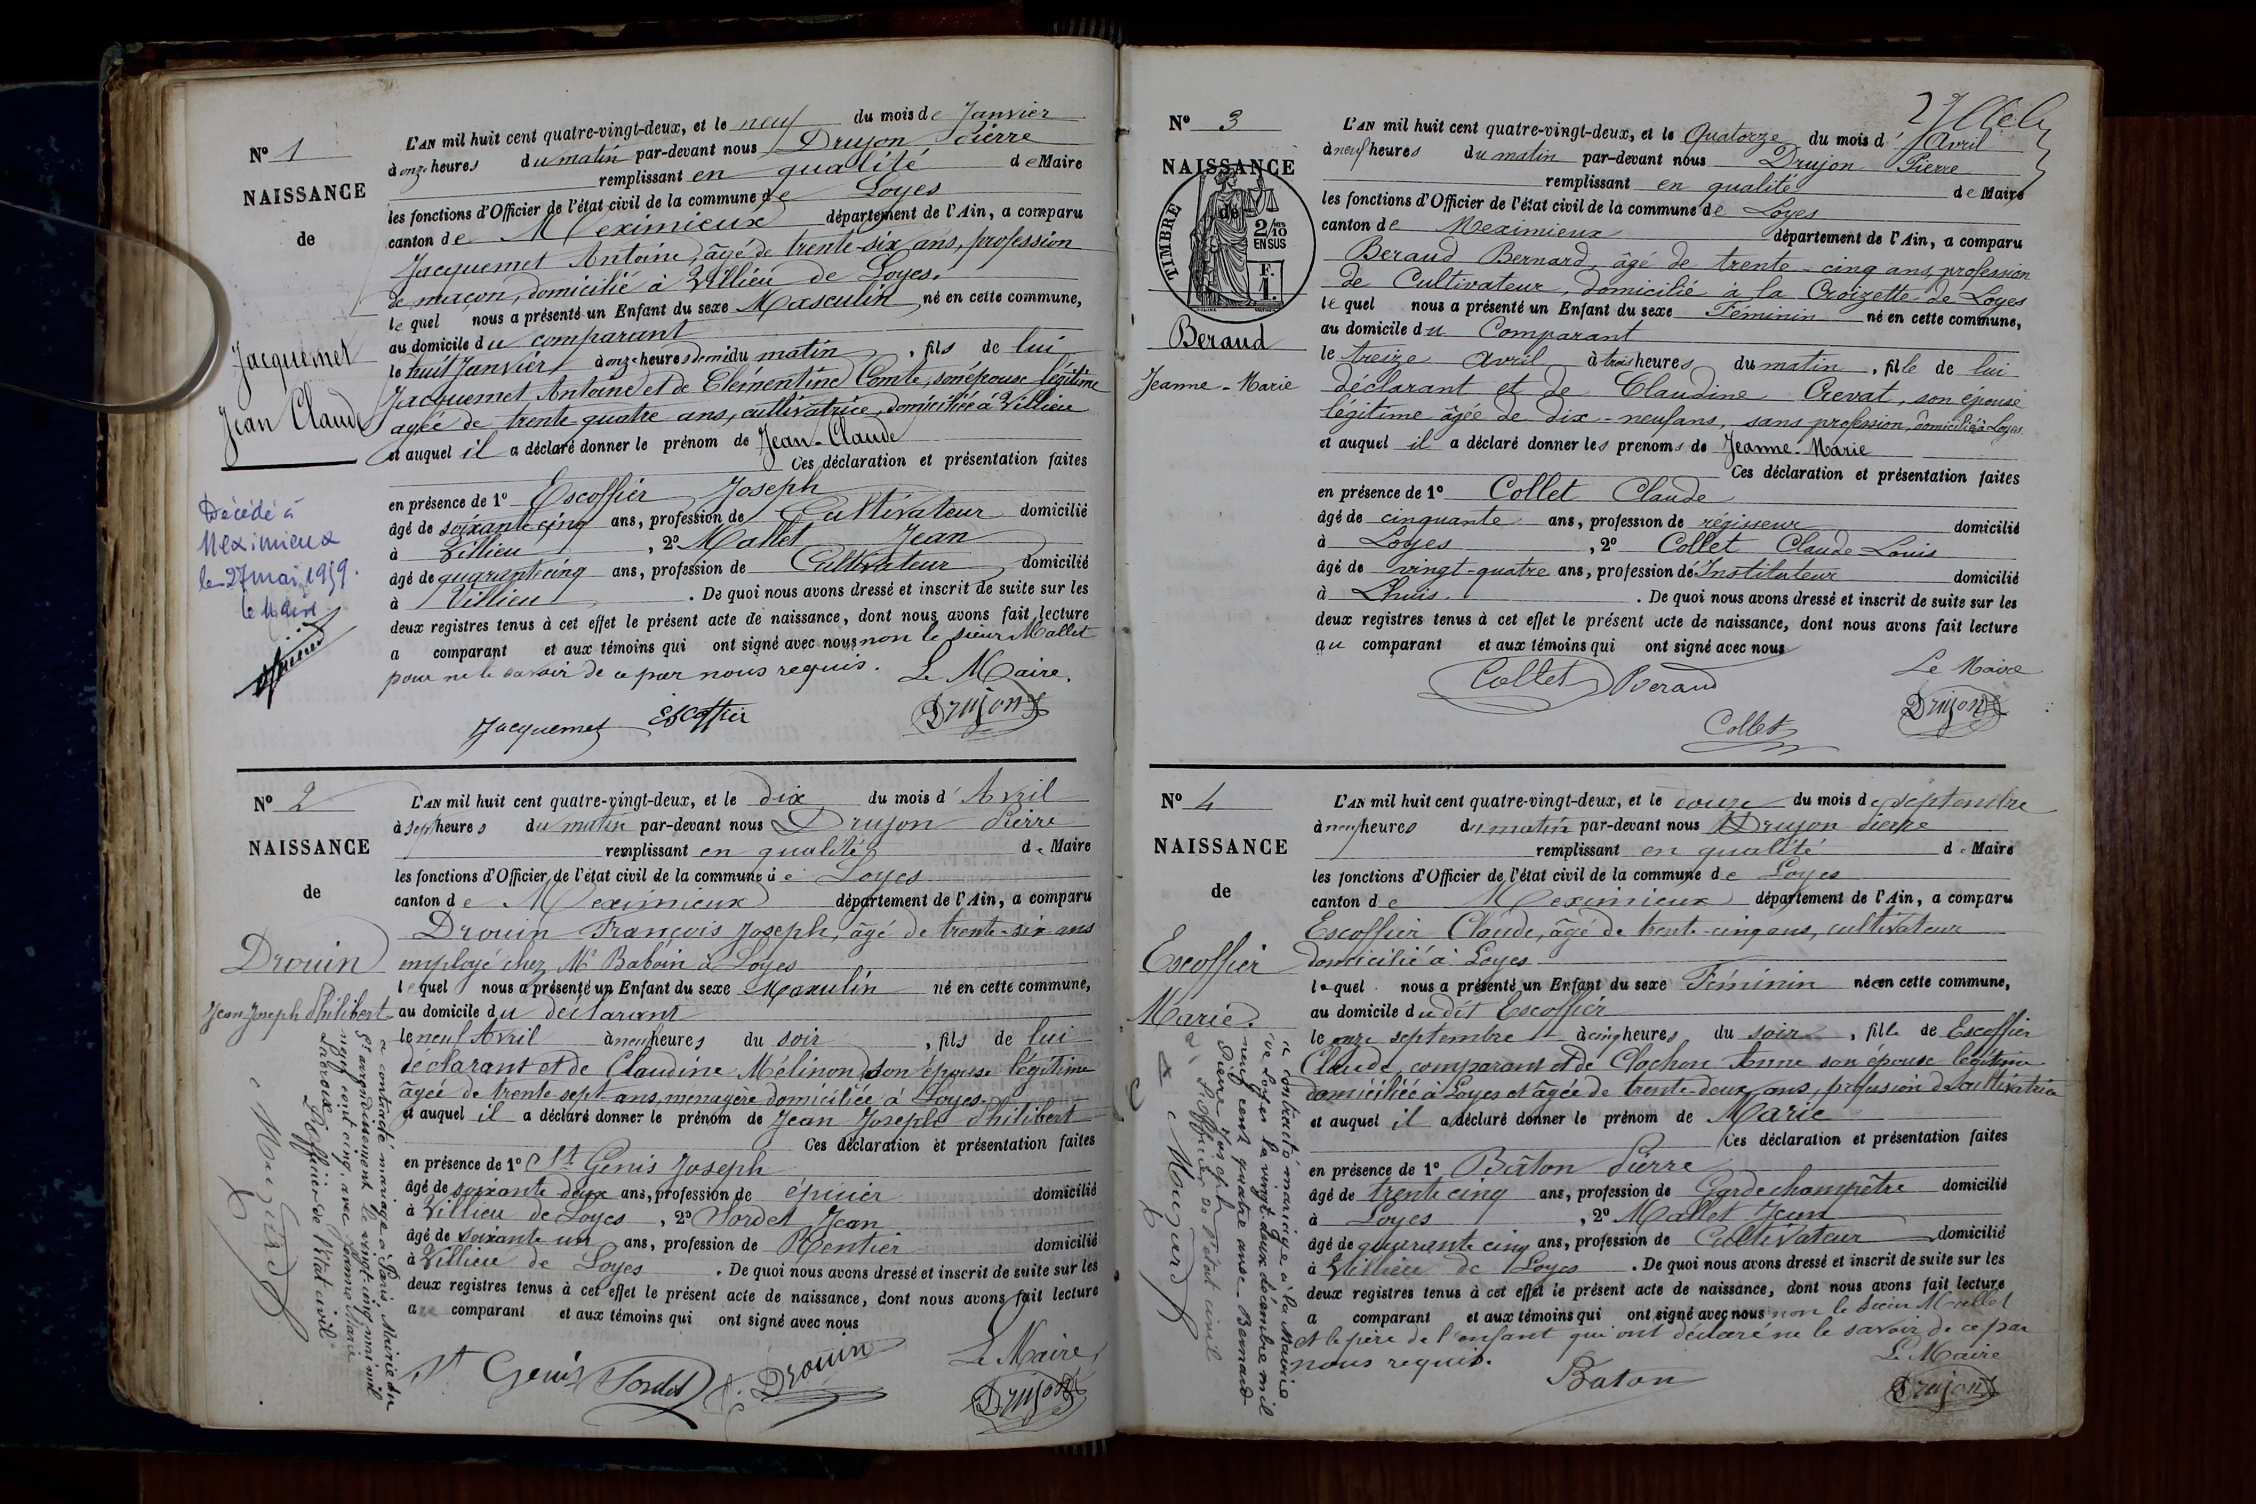 N° 1
NAISSANCE
de
Jacquemet
Jean Claude
Décédé à
Meximieux
le 27 mai 1959.
le Maire
L'AN mil huit cent quatre-vingt-deux, et le neuf du mois de Janvier
à onze heures du matin par-devant nous Drujon Pierre
remplissant en qualité de Maire
les fonctions d'Officier de l'état civil de la commune de Loyes
canton de Meximieux département de l'Ain, a comparu
Jacquemet Antoine, âgé de trente-six ans, profession
de maçon, domicilié à Villieu de Loyes.
lequel nous a présenté un Enfant du sexe Masculin né en cette commune,
au domicile du comparant
le huit Janvier à onze heures demi du matin, fils de lui
Jacquemet Antoine et de Clémentine Comte, son épouse légitime
agée de trente quatre ans, cultivatrice, domiciliée à Villieu
et auquel il a déclaré donner le prénom de Jean-Claude
Ces déclaration et présentation faites
en présence de 1° Escoffier Joseph
âgé de soixante cinq ans, profession de Cultivateur domicilié
à Villieu, 2° Mallet Jean
âgé de quarante cinq ans, profession de Cultivateur domicilié
à Villieu. De quoi nous avons dressé et inscrit de suite sur les
deux registres tenus à cet effet le présent acte de naissance, dont nous avons fait lecture
a comparant et aux témoins qui ont signé avec nous non le sieur Mallet
pour ne le savoir de ce par nous requis. Le Maire.
Jacquemet Escoffier Drujon
N° 2
NAISSANCE
de
Drouin
Jean Joseph Philibert
a contracté mariage à Paris, Mairie du
6e arrondissement le vingt-cinq mai mil
neuf cent cinq, avec Jeanne Marie
Lacroix. L'officier de l'Etat civil
L'AN mil huit cent quatre-vingt-deux, et le dix du mois d'Avril
à sept heures du matin par-devant nous Drujon Pierre
remplissant en qualité de Maire
les fonctions d'Officier de l'état civil de la commune de Loyes
canton de Meximieux département de l'Ain, a comparu
Drouin François Joseph, âgé de trente-six ans
employé chez Mr Baboin à Loyes
lequel nous a présenté un Enfant du sexe Masculin né en cette commune,
au domicile du déclarant
le neuf Avril à neuf heures du soir, fils de lui
déclarant et de Claudine Mélinon, son épouse légitime
âgée de trente-sept ans, ménagère domiciliée à Loyes.
et auquel il a déclaré donner le prénom de Jean Joseph Philibert
Ces déclaration et présentation faites
en présence de 1° St Genis Joseph
âgé de soixante deux ans, profession de épicier domicilié
à Villieu de Loyes, 2° Sordet Jean
âgé de soixante un ans, profession de Rentier domicilié
à Villieu de Loyes. De quoi nous avons dressé et inscrit de suite sur les
deux registres tenus à cet effet le présent acte de naissance, dont nous avons fait lecture
au comparant et aux témoins qui ont signé avec nous
Le Maire
St Genis Sordet Drouin Drujon
N° 3
NAISSANCE
de
TIMBRE
2/10
EN SUS
F.
1.
Beraud
Jeanne-Marie
L'AN mil huit cent quatre-vingt-deux, et le Quatorze du mois d'Avril
à neuf heures du matin par-devant nous Drujon Pierre
remplissant en qualité de Maire
les fonctions d'Officier de l'état civil de la commune de Loyes
canton de Meximieux département de l'Ain, a comparu
Beraud Bernard, âgé de trente-cinq ans, profession
de Cultivateur, domicilié à la Croizette de Loyes
lequel nous a présenté un Enfant du sexe Féminin né en cette commune,
au domicile du Comparant
le treize Avril à trois heures du matin, fille de lui
déclarant et de Claudine Crevat, son épouse
légitime âgée de dix-neuf ans, sans profession, domiciliée à Loyes
et auquel il a déclaré donner les prenoms de Jeanne-Marie
Ces déclaration et présentation faites
en présence de 1° Collet Claude
âgé de cinquante ans, profession de régisseur domicilié
à Loyes, 2° Collet Claude Louis
âgé de vingt-quatre ans, profession de Instituteur domicilié
à Lhuis. De quoi nous avons dressé et inscrit de suite sur les
deux registres tenus à cet effet le présent acte de naissance, dont nous avons fait lecture
au comparant et aux témoins qui ont signé avec nous
Le Maire
Collet Beraud Drujon
Collet
N° 4
NAISSANCE
de
Escoffier
Marie.
a contracté mariage à la Mairie
de Loyes le vingt-deux décembre mil
neuf cent quatre avec Bernard
Pierre Joseph
L'officier de l'état civil
L'AN mil huit cent quatre-vingt-deux, et le douze du mois de septembre
à neuf heures du matin par-devant nous Drujon Pierre
remplissant en qualité de Maire
les fonctions d'Officier de l'état civil de la commune de Loyes
canton de Meximieux département de l'Ain, a comparu
Escoffier Claude, âgé de trente-cinq ans, cultivateur
domicilié à Loyes
lequel nous a présenté un Enfant du sexe Féminin né en cette commune,
au domicile du dit Escoffier
le onze septembre à cinq heures du soir, fille de Escoffier
Claude, comparant et de Clochon Anne son épouse légitime
domiciliée à Loyes et âgée de trente-deux ans, profession de cultivatrice
et auquel il a déclaré donner le prénom de Marie
Ces déclaration et présentation faites
en présence de 1° Bâton Pierre
âgé de trente cinq ans, profession de Garde champêtre domicilié
à Loyes, 2° Mallet Jean
âgé de quarante cinq ans, profession de Cultivateur domicilié
à Villieu de Loyes. De quoi nous avons dressé et inscrit de suite sur les
deux registres tenus à cet effet le présent acte de naissance, dont nous avons fait lecture
a comparant et aux témoins qui ont signé avec nous non le sieur Mallet
et le père de l'enfant qui ont déclaré ne le savoir de ce par
nous requis. Le Maire
Baton Drujon